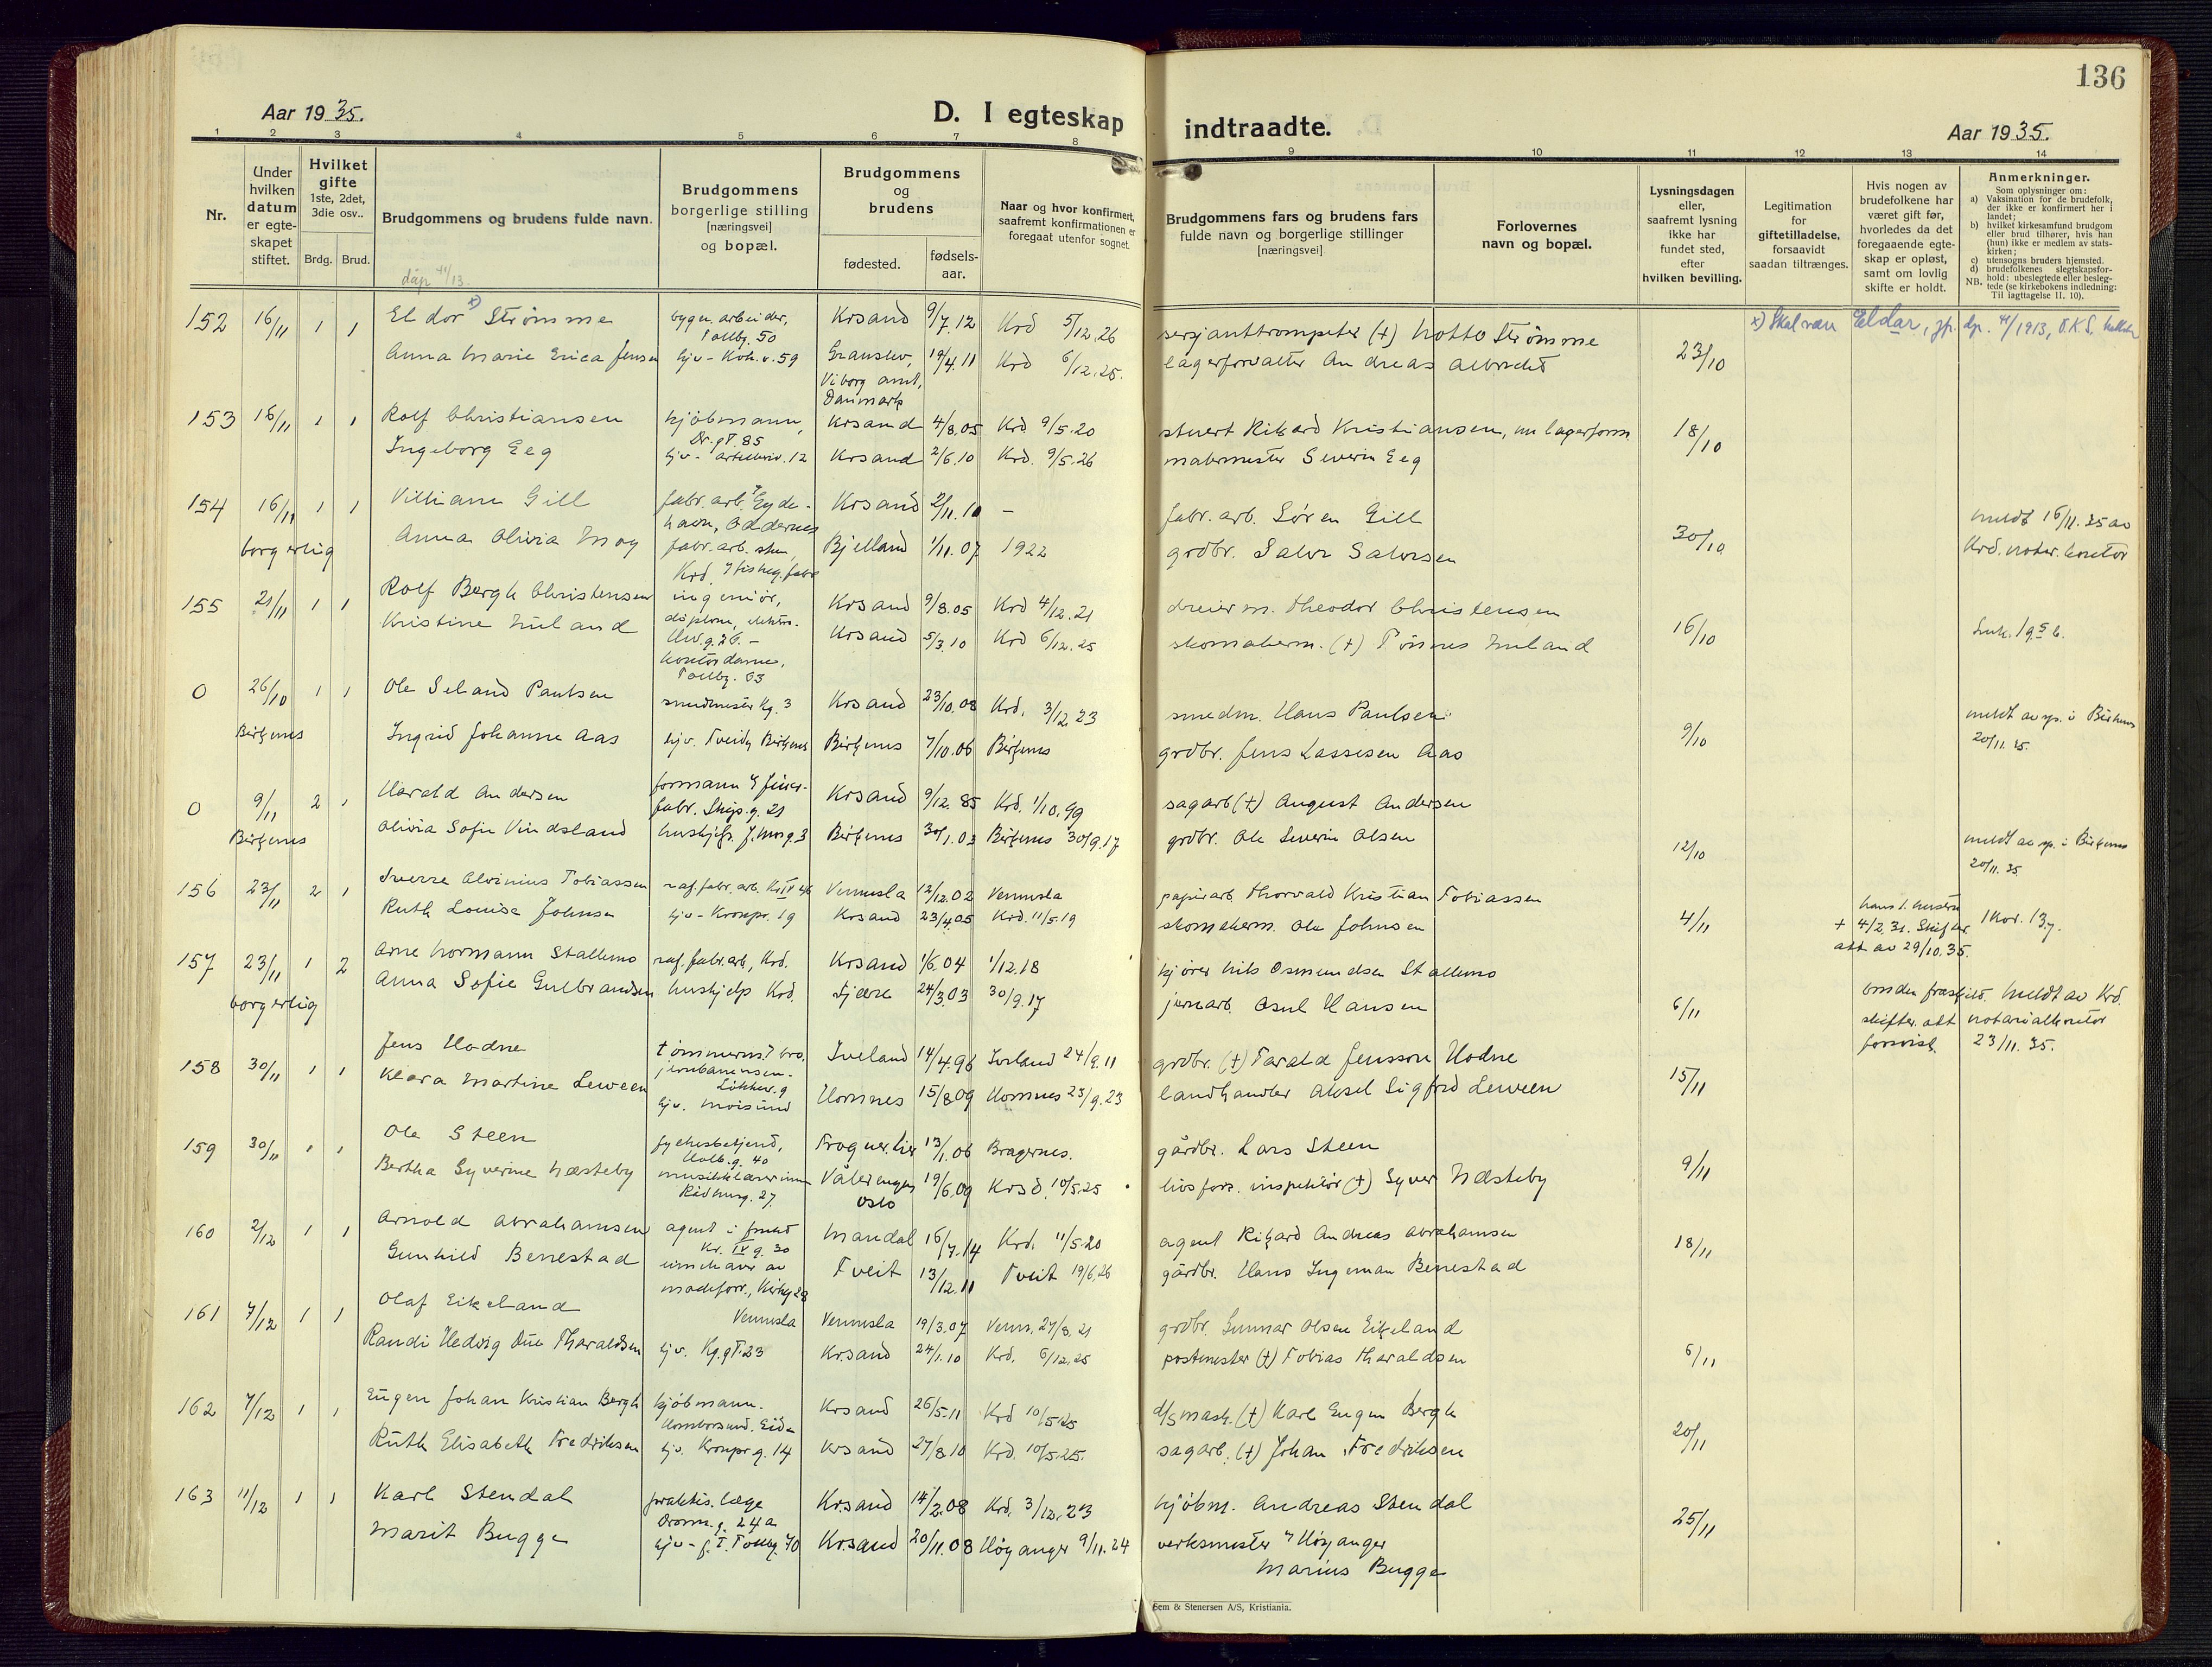 136
Aar 1935.
D. I egteskap
indtraadte.
Aar 1935.
1 2 3 4 5 6 7 8 9 10 11 12 13 14
Nr.
Under hvilken datum er egteskapet stiftet.
Hvilket gifte 1ste, 2det, 3die osv..
Brdg. Brud.
Brudgommens og brudens fulde navn.
Brudgommens borgerlige stilling [næringsvei] og bopæl.
Brudgommens og brudens
fødested.
fødsels-aar.
Naar og hvor konfirmert, saafremt konfirmationen er foregaat utenfor sognet.
Brudgommens fars og brudens fars fulde navn og borgerlige stillinger [næringsvei]
Forlovernes navn og bopæl.
Lysningsdagen eller, saafremt lysning ikke har fundet sted, efter hvilken bevilling.
Legitimation for giftetilladelse, forsaavidt saadan tiltrænges.
Hvis nogen av brudefolkene har været gift før, hvorledes da det foregaaende egteskap er opløst, samt om lovlig skifte er holdt.
Anmerkninger.
Som oplysninger om:
a) Vaksination for de brudefolk, der ikke er konfirmert her i landet;
b) hvilket kirkesamfund brudgom eller brud tilhører, hvis han (hun) ikke er medlem av statskirken;
c) utensogns bruders hjemsted.
d) brudefolkenes slegtskapsforhold: ubeslegtede eller beslegtede (se kirkebokens indledning: Til iagttagelse II. 10).
NB.
152 16/11 1 1 Eldor x) Strømme bygn. arbeider, Tollbg. 50 Krsand 9/7.12 Krd 5/12.26 serjanttrompeter (+) Notto Strømme
x) Skal være Eldar, jfr. dp. 1913, D.K.S.
Anna Marie Erica Jensen hjv - Koh.v. 59 Granslev, Viborg amt, Danmark 19/4.11 Krd 6/12.25. lagerforvalter Andreas Albrecht 23/10
153 16/11 1 1 Rolf Christiansen kjøbmann, Dr.gt. 85 Krsand 4/8.05 Krd. 9/5.20 stuert Rikard Kristiansen, nu lagerform. 18/10
Ingeborg Eeg hjv - 12 Krsand 2/6.10 Krd. 9/5.26 malermester Severin Eeg
154 16/11 1 1 Villiam Gill fabr. arb. Eydehavn, Oddernes Krsand 2/11.10 - fabr. arb. Søren Gill 30/10 meldt 16/11.35 av
borgerlig Anna Olivia Moy fabr. arb. Krd. Bjelland 1/11.07 1922 grdbr. Salve Salvesen Krd. notar. kontor
155 21/11 1 1 Rolf Bergh Christensen ingeniør, diplom, elektro. Elv.g. 26. - Krsand 9/8.05 Krd 4/12.21 dreierm. Theodor Christensen 16/10
Kristine Nuland kontordame, Tollbg. 63 Krsand 5/3.10 Krd 6/12.25 skomakerm. (+) Tønnes Nuland
0 26/10 1 1 Ole Seland Paulsen smedmester Kg. 3 Krsand 23/10.08 Krd. 3/12.23 smedm. Hans Paulsen 9/10 meldt av sp. i Birkenes
Birkenes Ingrid Johanne Aas hjv. Tveide Birkenes Birkenes 7/10.06 Birkenes grdbr. Jens Lassesen Aas 20/11.35.
0 9/11 2 1 Harald Andersen formann fabr. Skip.g. 21 Krsand 9/12.85 Krd. 1/10.99 sagarb (+) August Andersen 12/10
Birkenes Olivia Sofie Vindsland hushjelp Birkenes 30/1.03 Birkenes 30/9.17 grdbr. Ole Severin Olsen meldt av sp. i Birkenes 20/11.35
156 23/11 2 1 Sverre Alvinius Tobiassen raf. fabr. arb. Kr IV 46 Vennesla 12/12.02 Vennesla papirarb Thorvald Kristian Tobiassen 4/11 hans 1. hustru + 4/2.31. att av 29/10.35. 1 Kor. 13,7.
Ruth Louise Johnsen hjv - Kronpr. 19 Krsand 23/4.05 Krd. 11/5.19 skomakerm. Ole Johnsen
157 23/11 1 2 Arne Normann Stallemo raf. fabr. arb, Krd. Krsand 1/6.04 1/12.18 kjører Nils Osmundsen Stallemo 6/11
borgerlig Anna Sofie Gulbrandsen hushjelp Krd. Fjære 24/3.03 30/9.17 jernarb. Osul Hansen bruden fraskilt. skifter. att forevist. meldt av Krd. notarialkontor 23/11.35.
158 30/11 1 1 Jens Hodne tømmerm. jernbanen Iveland 14/4.96 Iveland 24/9.11 grdbr. (+) Tarald Jensson Hodne 15/11
Klara Martine Leween hjv. Moisund Hornnes 15/8.09 Hornnes 23/9.23 landhandler Aksel Sigfred Leween
159 30/11 1 1 Ole Steen fyrbetjent, Holb.g. 40 Krsand 13/1.06 Bragernes. gårdbr. Lars Steen 9/11
Bertha Syverine Næsteby musikklærerinne Rådhusg. 27. Vålerengen Oslo 19/6.09 Krsd. 10/5.25 livsfors. inspektør (+) Syver Næsteby
160 2/12 1 1 Arnold Abrahamsen agent i Kr. IV g. 30 Mandal 16/7.14 Krd. 11/5.20 agent Rikard Andreas Abrahamsen 18/11
Gunhild Benestad innehaver av modeforr., Kirkeg 28 Tveit 13/12.11 Tveit 19/6.26 gårdbr. Hans Ingeman Benestad
161 7/12 1 1 Olaf Eikeland Vennesla Vennesla 19/3.07 Venn. 27/8.21 grdbr. Gunnar Olsen Eikeland 6/11
Randi Hedvig Due Tharaldsen hjv. Kg.gt. 23 Krsand 24/1.10 Krd. 6/12.25 postmester (+) Tobias Tharaldsen
162 7/12 1 1 Eugen Johan Kristian Bergh kjøbmann. Homborsund. Eide Krsand 26/5.11 Krd 10/5.25 d/s mask. (+) Karl Eugen Bergh 20/11
Ruth Elisabeth Fredriksen hjv. Kronpr g. 14 Krsand 27/8.10 Krd. 10/5.25. sagarb. (+) Johan Fredriksen
163 11/12 1 1 Karl Stendal praktis. læge Dronn.g. 24a Krsand 14/2.08 Krd. 3/12.23 kjøbm. Andreas Stendal 25/11
Marit Bugge hjv - Tollbg. 70 Krsand 20/11.08 Høyanger 9/11.24 verksmester Høyanger
Marius Bugge
Sem & Stenersen A/S, Kristiania.